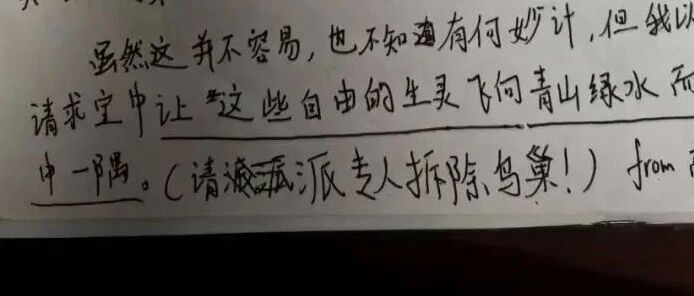 虽然这并不容易，也不知道有何妙计，但我
请求空中让这些自由的生灵飞向青山绿水 而
中一隅。（请派专人拆除鸟巢！）from